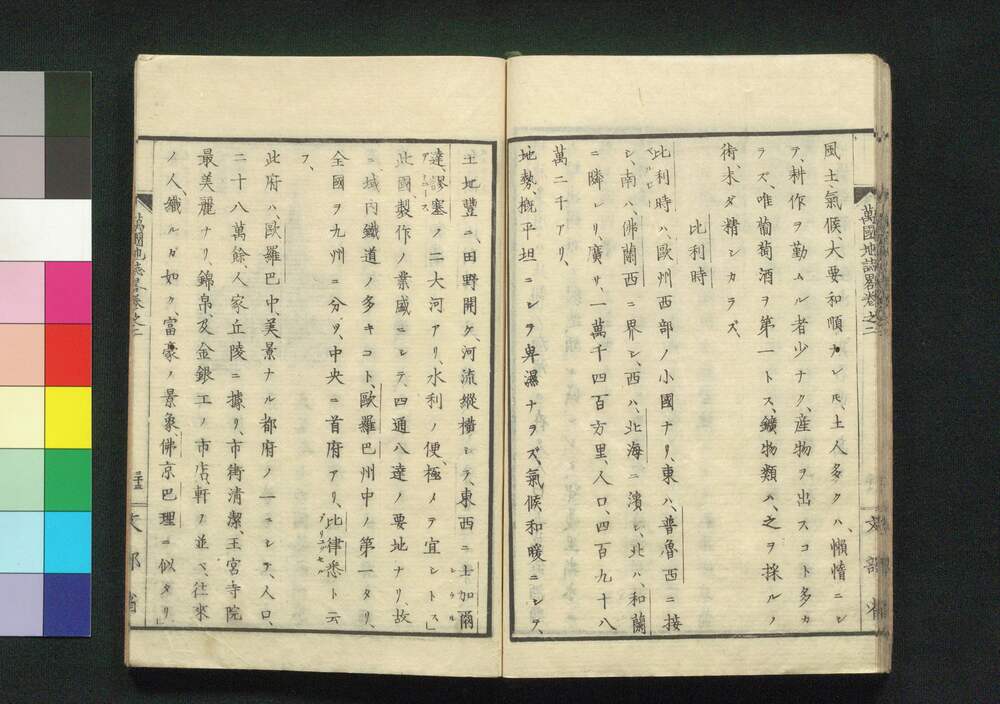 萬國地誌畧卷之二
文部省
風土、氣候、大要和順ナレㇳモ、土人多クハ、懶惰ニシ
テ、耕作ヲ勤ムル者少ナク、産物ヲ出スコト多カ
ラズ、唯葡萄酒ヲ第一トス、鑛物類ハ、之ヲ採ルノ
術、未ダ精シカラズ、
比利時
比利時ハ、歐州西部ノ小國ナリ、東ハ、普魯西ニ接
シ、南ハ、佛蘭西ニ界シ、西ハ、北海ニ濱シ、北ハ、和蘭
ニ隣レリ、廣サ、一萬千四百方里、人口、四百九十八
萬二千アリ、
地勢、概平坦ニシテ卑濕ナラズ、氣候和暖ニシテ、
土地豐ニ、田野開ク、河流縱橫シテ、東西ニ、士加爾
達、謬塞ノ二大河アリ、水利ノ便、極メテ宜シトス」
此國製作ノ業盛ニシテ、四通八達ノ要地ナリ、故
ニ域內鐵道ノ多キコト、歐羅巴州中ノ第一タリ、
全國ヲ九州ニ分ツ、中央ニ首府アリ、比律悉ト云
フ、
此府ハ、歐羅巴中、美景ナル都府ノ一ニシテ、人口、
二十八萬餘、人家丘陵ニ據リ、市街清潔、王宮寺院
最美麗ナリ、錦帛、及金銀工ノ市店、軒ヲ並ベ、往來
ノ人、織ルガ如ク、富豪ノ景象、佛京巴理ニ似タリ」
萬國地誌畧卷之二
三十五
文部省